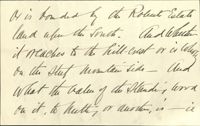 Or is bounded by the Robert Estate
land upon the South. And whether
it reaches to the hill crest or is only
on the steep mountain side - And
what the value of the Standing wood
on it, to milk, or another, is - is